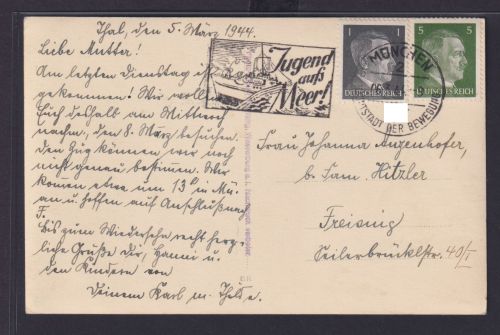 Thal, den 5. März 1944.
Liebe Mutter!
Am letzten Dienstag ist
gekommen! Wir woll
Euch deshalb am Mittwoch
nachm., den 8. März besuchen.
Den Zug können wir noch
nicht genau bestimmen. Wir
kommen etwa um 13 in Mü.
an u. hoffen auf Anschluß nach
F.
Bis zum Wiedersehn recht herz-
liche Grüße Dir, Hanni u.
den Kindern von
Deinem Karl m. Thilde.
Jugend
aufs
Meer!
1
DEUTSCHES REICH
5
DEUTSCHES REICH
MÜNCHEN
HAUPTSTADT DER BEWEGUNG
Frau Johanna Angenhofer,
b. Fam. Hitzler
Freising
Seilerbrücklstr. 40/I